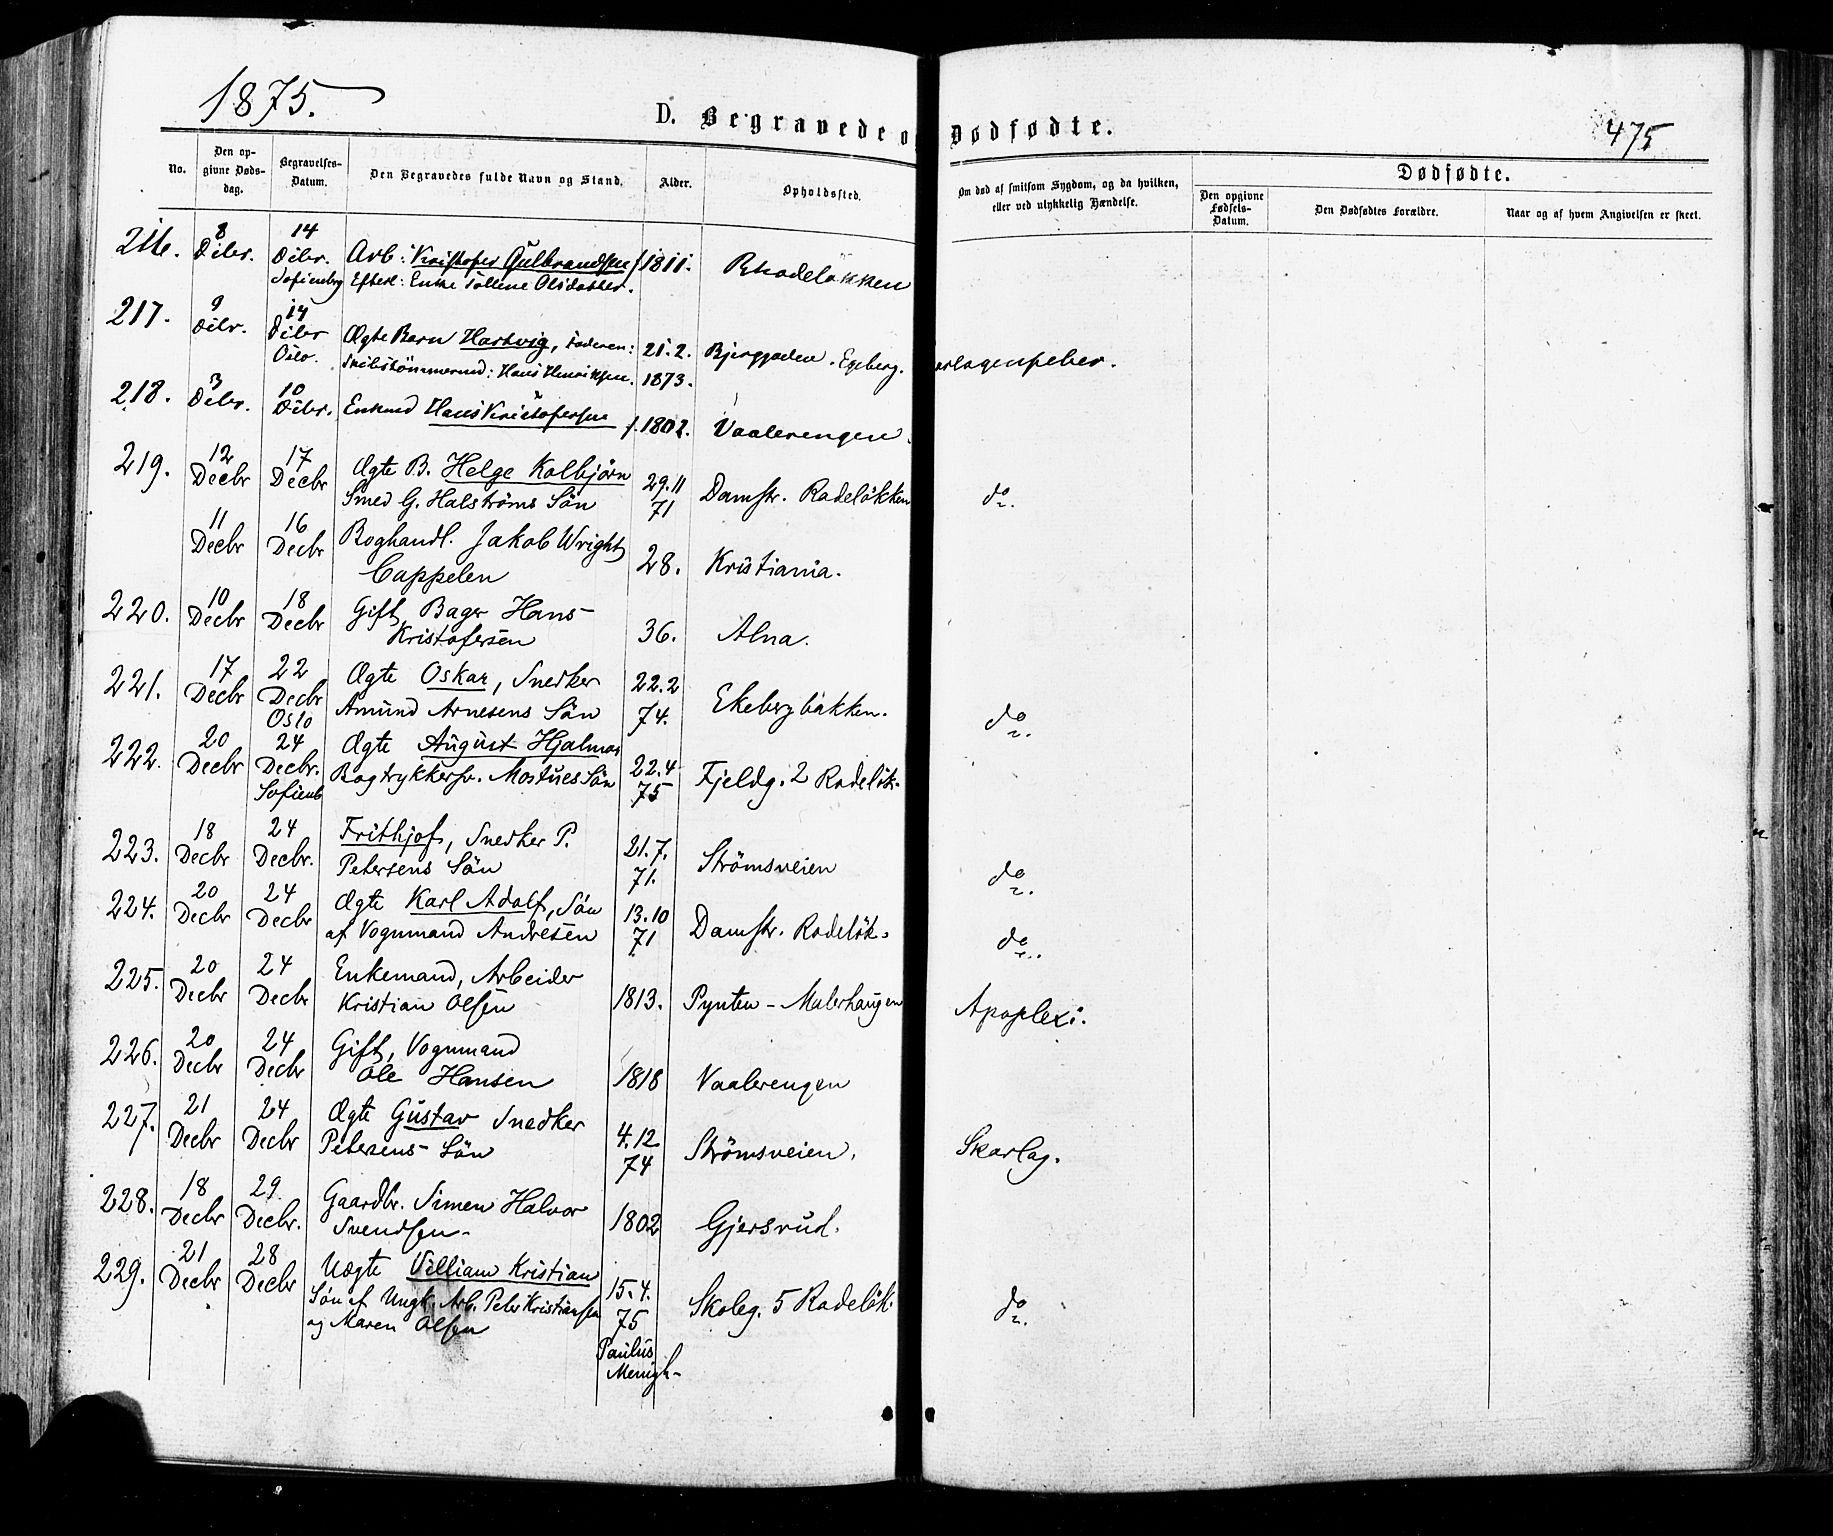 1875.
D. Begravede o Dødfødte.
475
No.
Den opgivne Døds-dag.
Begravelses-Datum.
Den Begravedes fulde Navn og Stand.
Alder.
Opholdssted.
Om død af smitsom Sygdom, og da hvilken, eller ved ulykkelig Hændelse.
Dødfødte.
Den opgivne Fødsels-Datum.
Den Dødfødtes Forældre.
Naar og af hvem Angivelsen er skeet.
216. 8 Dcbr. 14 Dcbr. Sofienbg Arb: Kristofer Gulbrandsen f 1811. Rhodeløkken
Efterl: Enke Olsdatter.
217. 9 Dcbr. 14 Dcbr Oslo. Ægte Barn Hartvig, Faderen: 21.2. 1873. Bjerggaden. Egeberg. arlagensfeber.
Skibstömmermd: Hans Henriksen.
218. 3 Dcbr. 10 Dcbr. Enkemd Hans Kristofersen f. 1802. Vaalerengen.
219. 12 Decbr 17 Decbr Ægte B. Helge Kolbjörn 29.11 71 Damstr. Rodeløkken do.
Smed G. Halströms Sön
11 Decbr 16 Decbr Boghandl. Jakob Wright 28. Kristiania.
Cappelen
220. 10 Decbr 18 Decbr Gift, Bager Hans 36. Alna.
Kristofersen
221. 17 Decbr 22 Decbr Oslo Ægte Oskar, Snedker 22.2 74. Ekebergbakken. do.
Amund Arnesens Sön
222. 20 Decbr 24 Decbr. Sofienb Ægte August Hjalmar 22.4 75 Fjeldg. 2 Rodeløk.
Bogtrykkersv. Mostues Sön
223. 18 Decbr 24 Decbr. Frithjof, Snedker P. 21.7. 71. Strömsveien do.
Petersens Sön
224. 20 Decbr 24 Decbr Ægte Karl Adolf, Sön 13.10 71 Damstr. Rodeløk. do.
af Vognmand Andresen
225. 20 Decbr 24 Decbr Enkemand, Arbeider 1813. Pynten - Malerhaugen Apoplexi.
Kristian Olsen
226. 20 Decbr 24 Decbr Gift, Vognmand 1818 Vaalerengen
Ole Hansen
227. 21 Decbr 24 Decbr Ægte Gustav Snedker 4.12 74 Strömsveien. Skarlag.
Petersens Sön
228. 18 Decbr 29 Decbr. Gaardbr. Simen Halvor 1802 Gjersrud.
Svendsen
229. 21 Decbr 28 Decbr Uægte Villiam Kristian 15.4. 75 Skoleg. 5 Rodeløk. do.
Sön af Ungk. Arb. Peter Kristiansen
og Maren Olsen
Paulus
Menigh-